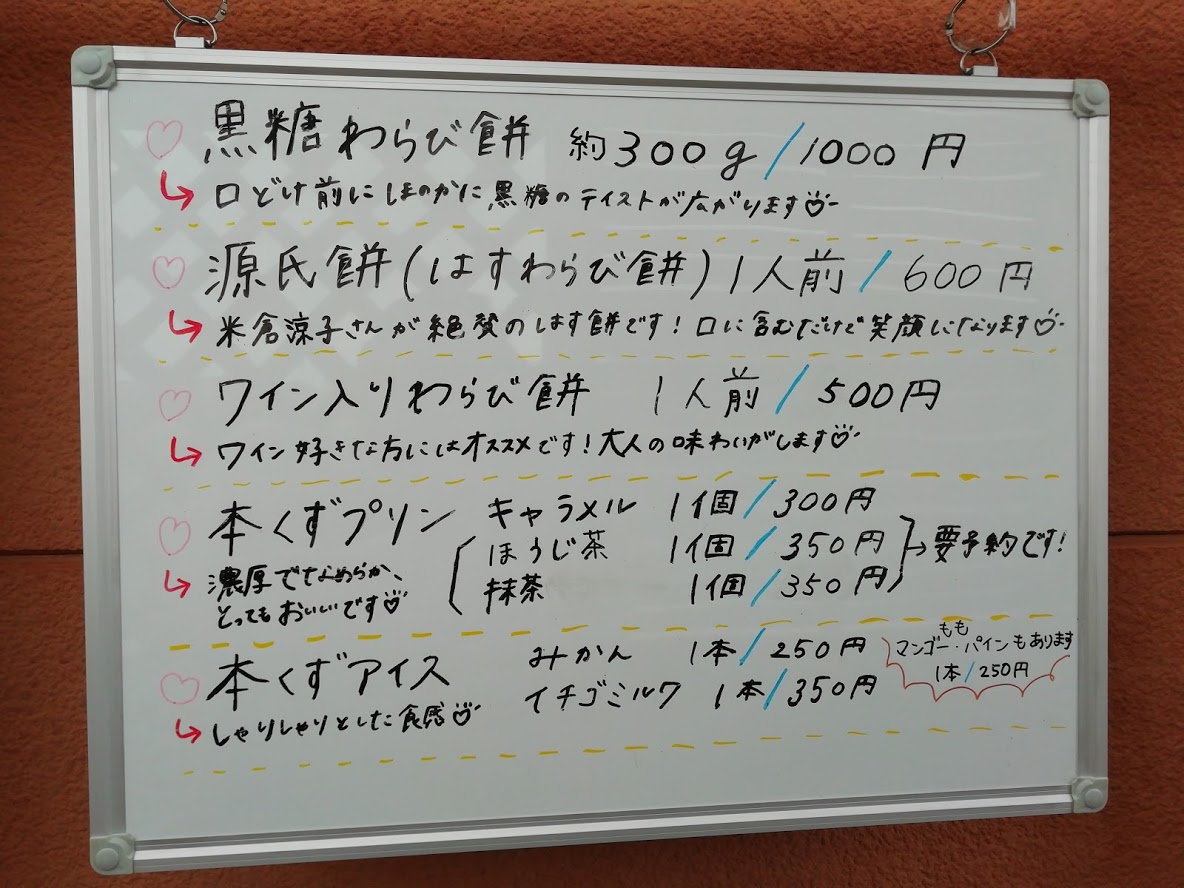 黒糖わらび餅 約300g/1000円
口どけ前にほのかに黒糖のテイストが広がります
源氏餅(はすわらび餅)1人前/600円
米倉涼子さんが絶賛のはす餅です!口に含むだけで笑顔になります
ワイン入りわらび餅 1人前/500円
ワイン好きな方にはオススメです!大人の味わいがします
本くずプリン キャラメル 1個/300円
ほうじ茶 1個/350円
抹茶 1個/350円
要予約です!
濃厚でなめらか、
とってもおいしいです
本くずアイス みかん 1本/250円
イチゴミルク 1本/350円
もも
マンゴー・パインもあります
1本/250円
しゃりしゃりとした食感